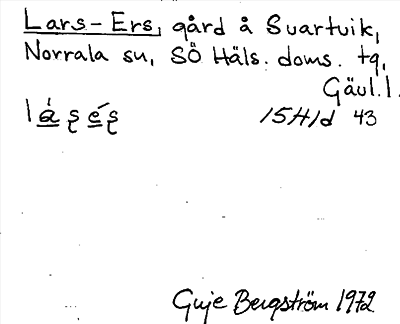 Lars-Ers, gård å Svartvik,
Norrala sn, SÖ Häls. doms. tg,
Gävl. l.
lá̱ṣé̱ṣ 15H1d 43
Guje Bergström 1972